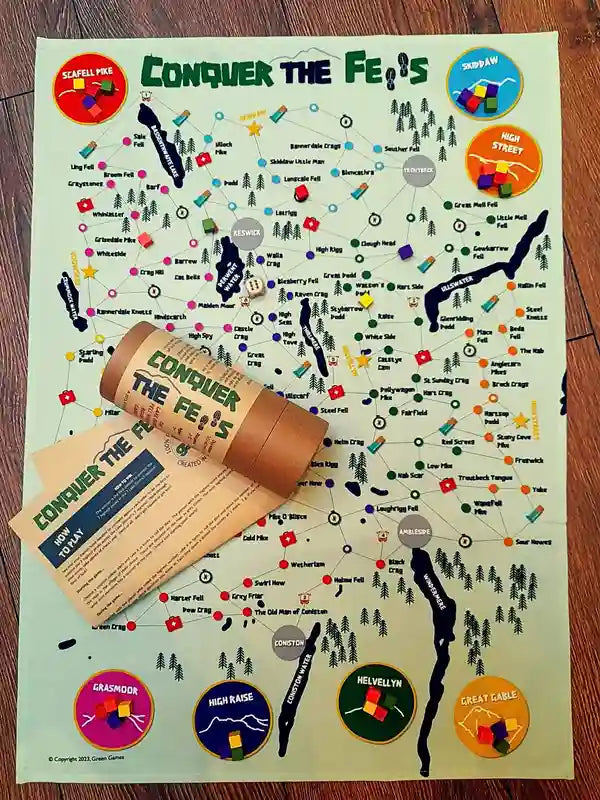 CONQUER THE FELLS
SCAFELL PIKE
SKIDDAW
HIGH STREET
BASSENTHWAITE LAKE
Sale Fell
Ling Fell
Broom Fell
Greystones
Barf
Whinlatter
Grisedale Pike
Whiteside
Ullock Pike
Skiddaw Little Man
Bannerdale Crags
Souther Fell
Lonscale Fell
Blencathra
Dodd
Latrigg
TROUTBECK
KESWICK
Great Mell Fell
Little Mell Fell
Gowbarrow Fell
High Rigg
Clough Head
Walla Crag
DERWENT WATER
Barrow
Cat Bells
Crag Hill
Maiden Moor
Rannerdale Knotts
Hindscarth
High Spy
Castle Crag
Bleaberry Fell
Raven Crag
High Seat
High Tove
Great Dodd
Watson's Dodd
Hart Side
Stybarrow Dodd
Raise
White Side
Catstye Cam
ULLSWATER
Glenridding Dodd
Hallin Fell
Steel Knotts
Place Fell
Beda Fell
The Nab
Angletarn Pikes
Brock Crags
St Sunday Crag
Hart Crag
Dollywagon Pike
Fairfield
Hartsop Dodd
HIGH STREET
Stony Cove Pike
Red Screes
Froswick
Low Pike
Troutbeck Tongue
Yoke
Nab Scar
Wansfell Pike
Sour Howes
Loughrigg Fell
Steel Fell
Helm Crag
AMBLESIDE
WINDERMERE
Black Crag
Holme Fell
Wetherlam
Cold Pike
Pike O'Blisco
Swirl How
Grey Friar
Harter Fell
Dow Crag
The Old Man of Coniston
Green Crag
CONISTON
CONISTON WATER
Starling Dodd
Pillar
CONQUER THE FELLS
CONQUER THE FE
HOW TO PLAY
HOW TO WIN
GRASMOOR
HIGH RAISE
HELVELLYN
GREAT GABLE
© Copyright 2023, Green Games